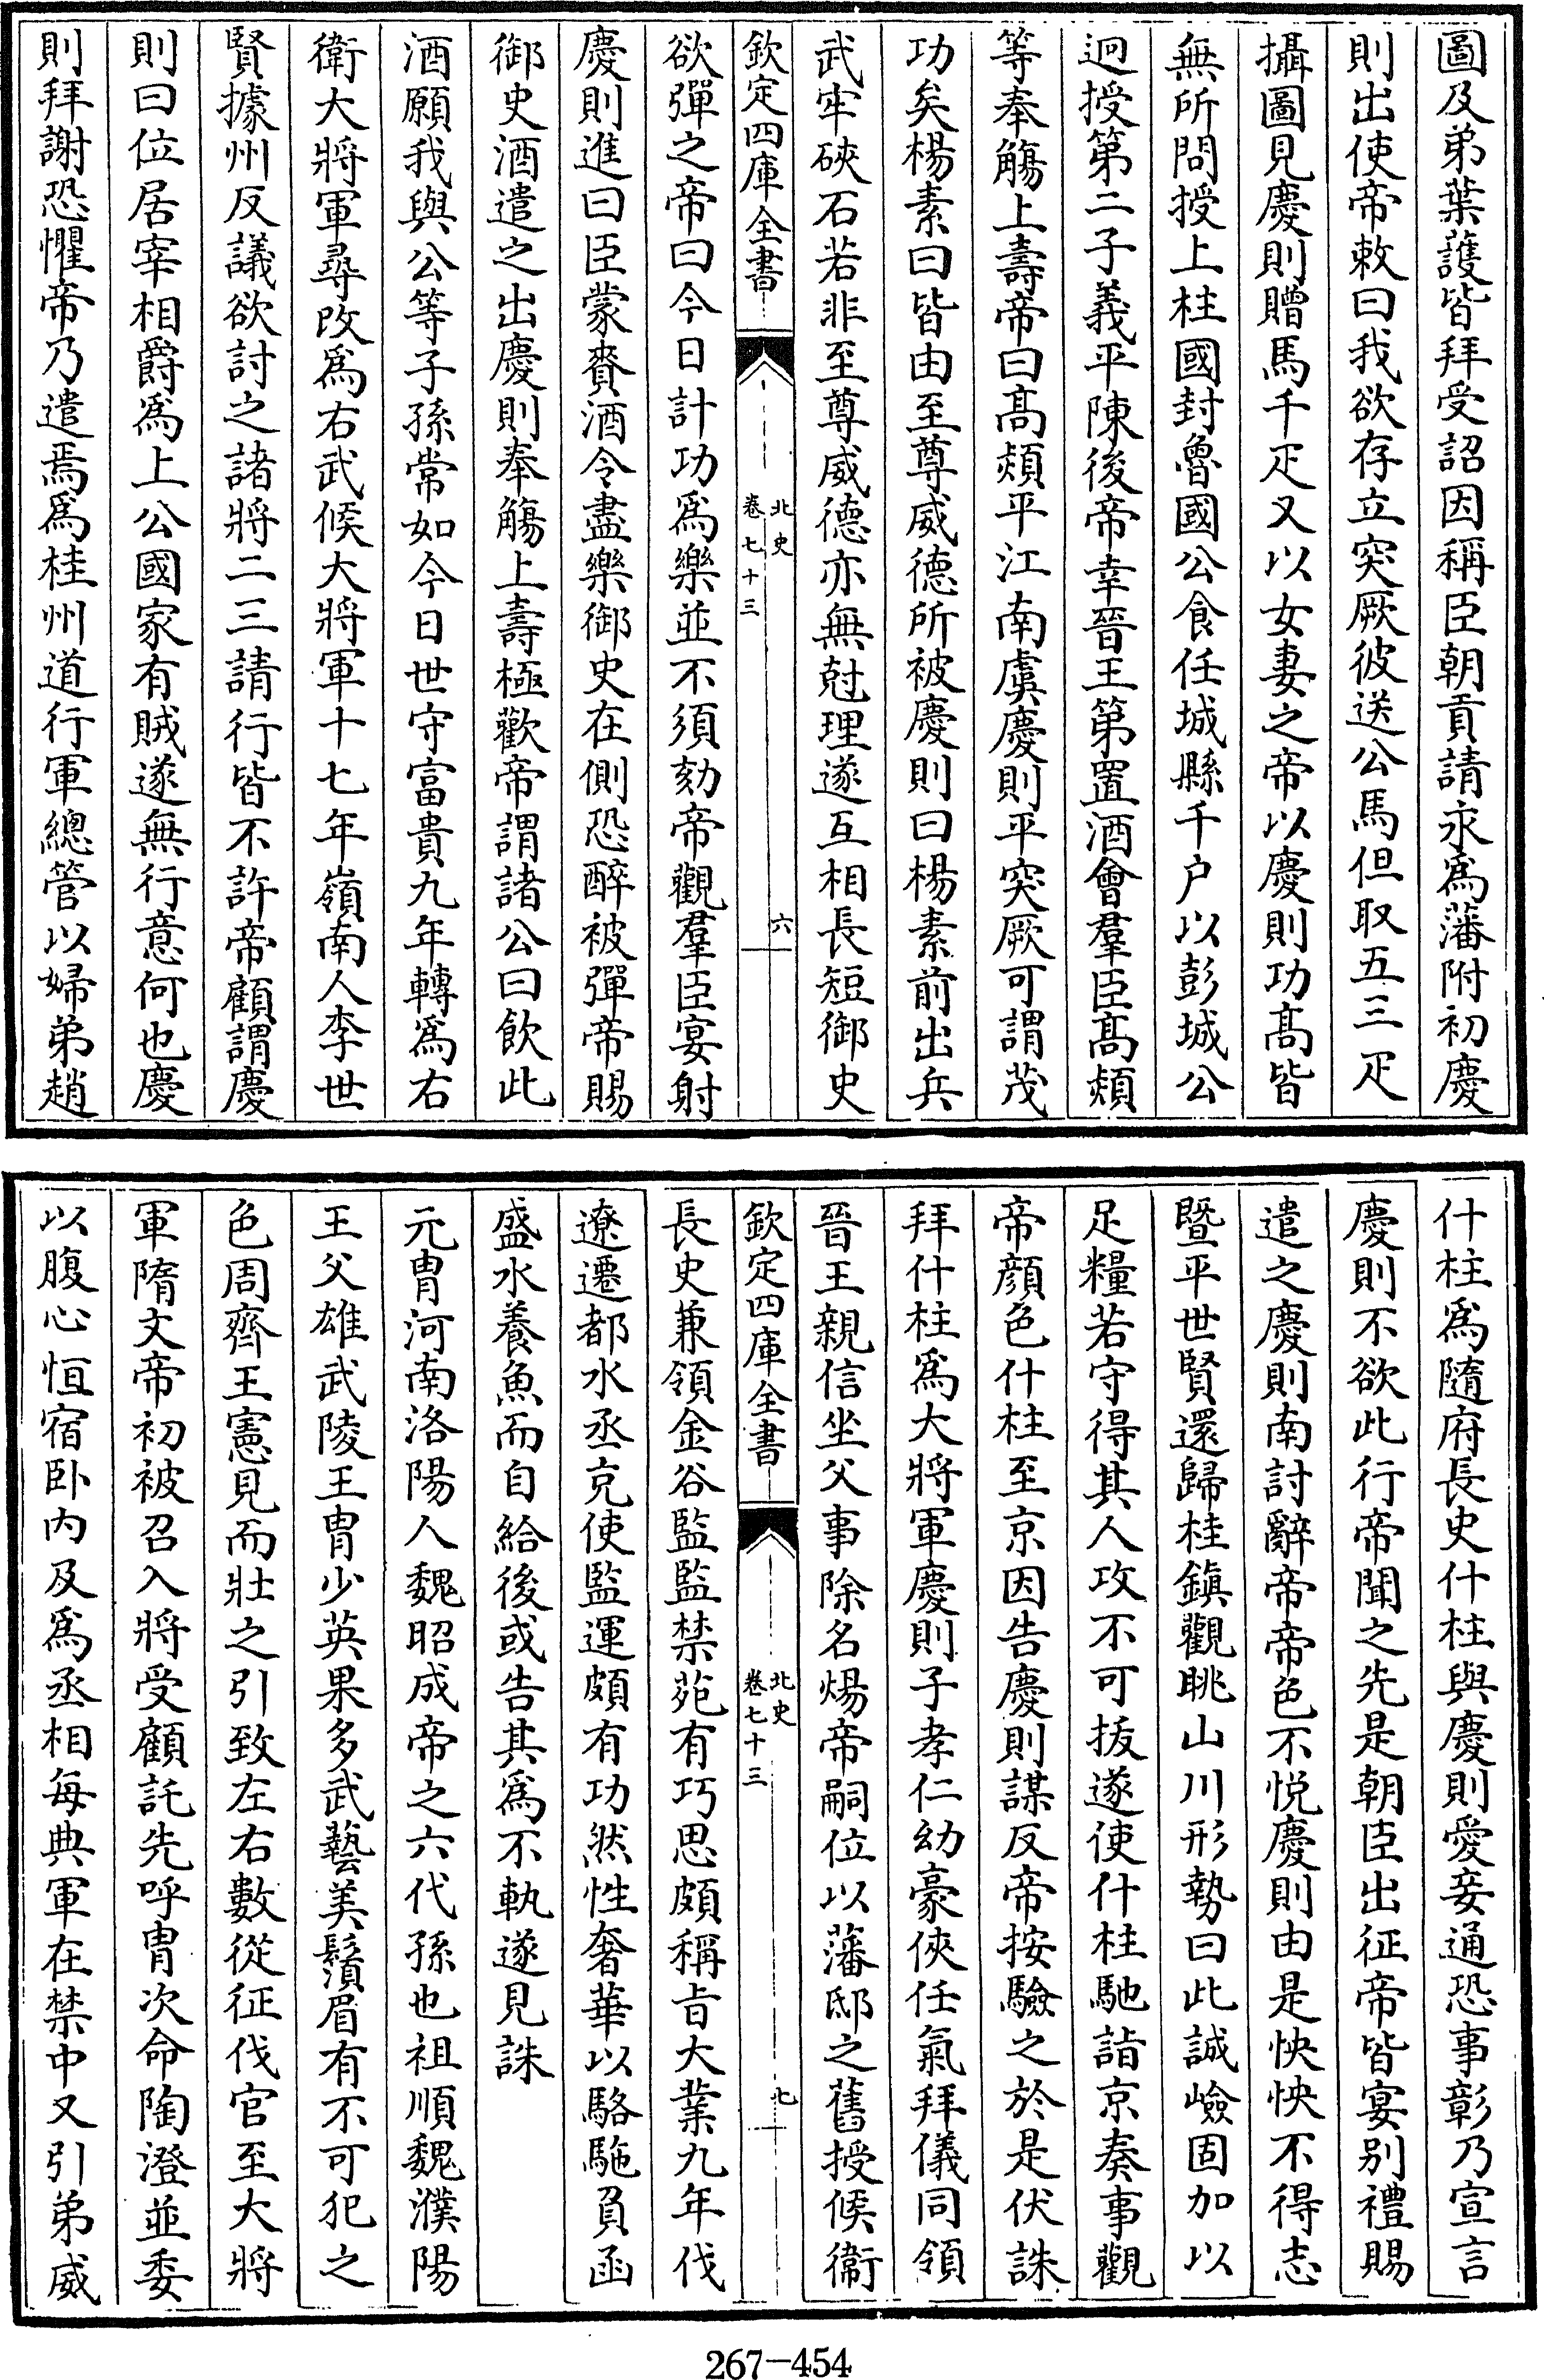 圖及弟葉䕶皆拜受詔因稱臣朝貢請永爲藩附初慶
則出使帝敕曰我欲存立突厥彼送公馬但取五三疋
攝圖見慶則贈馬千疋又以女妻之帝以慶則功髙皆
無所問授上柱國封魯國公食任城縣千户以彭城公
迥授第二子義平陳後帝幸晉王第置酒會羣臣髙熲
等奉觴上壽帝曰髙熲平江南虞慶則平突厥可謂茂
功矣楊素曰皆由至尊威德所被慶則曰楊素前出兵
武牢硤石若非至尊威德亦無尅理遂互相長短御史
欽定四庫全書
北史
卷七十三
六
欲彈之帝曰今日計功爲樂並不須劾帝觀羣臣宴射
慶則進曰臣蒙賚酒令盡樂御史在側恐醉被彈帝賜
御史酒遣之出慶則奉觴上壽極歡帝謂諸公曰飲此
酒願我與公等子孫常如今日世守富貴九年轉爲右
衛大將軍尋改爲右武候大將軍十七年嶺南人李世
賢據州反議欲討之諸將二三請行皆不許帝顧謂慶
則曰位居宰相爵爲上公國家有賊遂無行意何也慶
則拜謝恐懼帝乃遣焉爲桂州道行軍總管以婦弟趙
什柱爲隨府長史什柱與慶則愛妾通恐事彰乃宣言
慶則不欲此行帝聞之先是朝臣出征帝皆宴别禮賜
遣之慶則南討辭帝帝色不悦慶則由是怏怏不得志
暨平世賢還歸桂鎮觀眺山川形勢曰此誠嶮固加以
足糧若守得其人攻不可拔遂使什柱馳詣京奏事觀
帝顔色什柱至京因告慶則謀反帝按驗之於是伏誅
拜什柱爲大將軍慶則子孝仁幼豪俠任氣拜儀同領
晉王親信坐父事除名煬帝嗣位以藩邸之舊授候衞
欽定四庫全書
北史
卷七十三
七
長史兼領金谷監監禁苑有巧思頗稱旨大業九年伐
遼遷都水丞克使監運頗有功然性奢華以駱駞負函
盛水養魚而自給後或告其爲不軌遂見誅
元胄河南洛陽人魏昭成帝之六代孫也祖順魏濮陽
王父雄武陵王胄少英果多武藝美鬚眉有不可犯之
色周齊王憲見而壯之引致左右數從征伐官至大將
軍隋文帝初被召入將受顧託先呼胄次命陶澄並委
以腹心恒宿卧内及爲丞相每典軍在禁中又引弟威
267-454